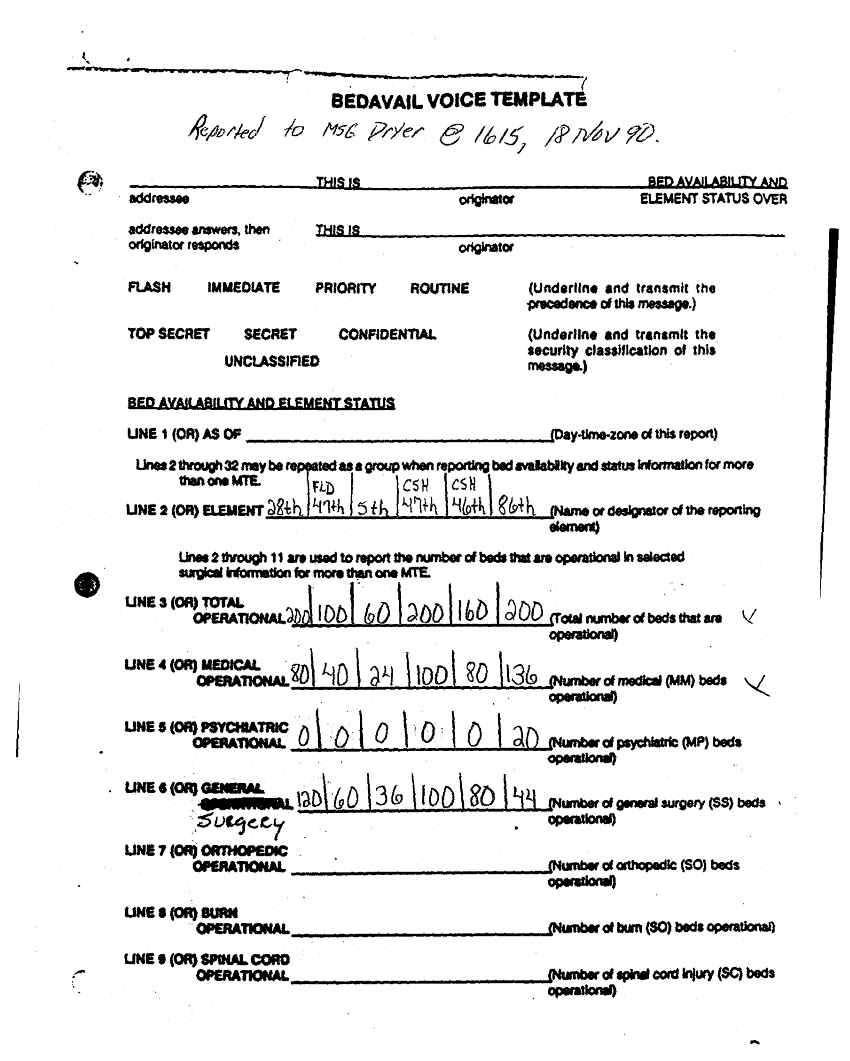 BEDAVAIL VOICE TEMPLATE
Reported to MSG Dryer @ 1615, 18 Nov 90.
THIS IS BED AVAILABILITY AND
addressee originator ELEMENT STATUS OVER
addressee answers, then THIS IS
originator responds originator
FLASH IMMEDIATE PRIORITY ROUTINE (Underline and transmit the
precedence of this message.)
TOP SECRET SECRET CONFIDENTIAL (Underline and transmit the
UNCLASSIFIED security classification of this
message.)
BED AVAILABILITY AND ELEMENT STATUS
LINE 1 (OR) AS OF (Day-time-zone of this report)
Lines 2 through 32 may be repeated as a group when reporting bed availability and status information for more
than one MTE.
FLD CSH CSH
LINE 2 (OR) ELEMENT 28th 47th 5th 47th 46th 86th (Name or designator of the reporting
element)
Lines 2 through 11 are used to report the number of beds that are operational in selected
surgical information for more than one MTE.
LINE 3 (OR) TOTAL
OPERATIONAL 200 100 60 200 160 200 (Total number of beds that are
operational)
LINE 4 (OR) MEDICAL
OPERATIONAL 80 40 24 100 80 136 (Number of medical (MM) beds
operational)
LINE 5 (OR) PSYCHIATRIC
OPERATIONAL 0 0 0 0 0 20 (Number of psychiatric (MP) beds
operational)
LINE 6 (OR) GENERAL
120 60 36 100 80 44 (Number of general surgery (SS) beds
Surgery operational)
LINE 7 (OR) ORTHOPEDIC
OPERATIONAL (Number of orthopedic (SO) beds
operational)
LINE 8 (OR) BURN
OPERATIONAL (Number of burn (SO) beds operational)
LINE 9 (OR) SPINAL CORD
OPERATIONAL (Number of spinal cord injury (SC) beds
operational)